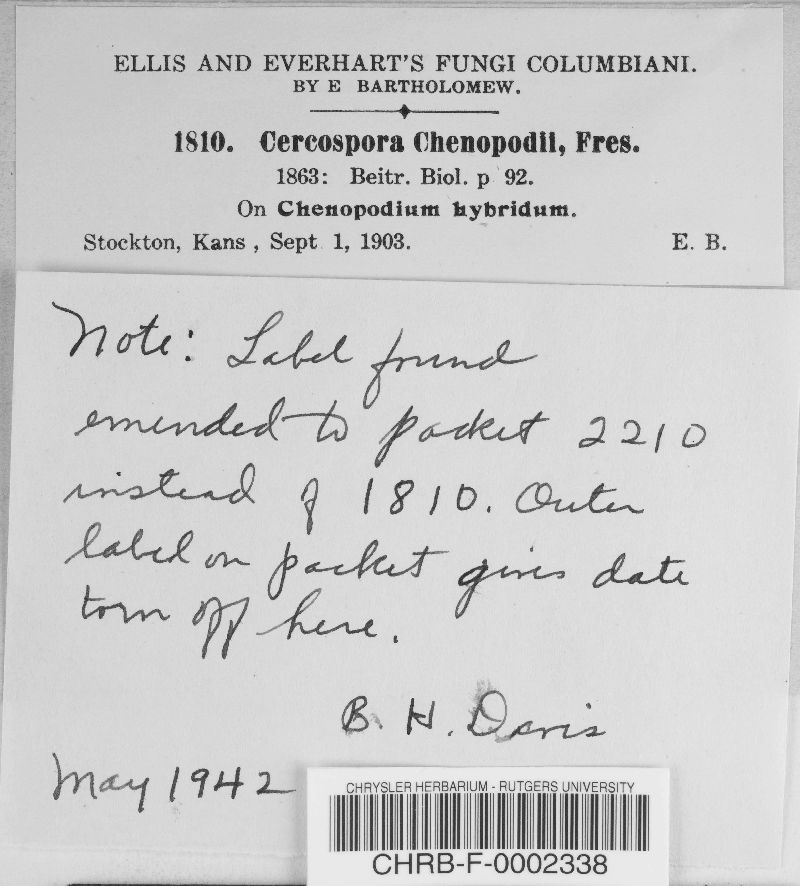 ELLIS AND EVERHART'S FUNGI COLUMBIANI.
BY E BARTHOLOMEW.
1810. Cercospora Chenopodii, Fres.
1863: Beitr. Biol. p 92.
On Chenopodium hybridum.
Stockton, Kans , Sept 1, 1903. E. B.
Note: Label found
emended to packet 2210
instead of 1810. Outer
label on packet gives date
torn off here.
B. H. Davis
May 1942
CHRYSLER HERBARIUM - RUTGERS UNIVERSITY
CHRB-F-0002338